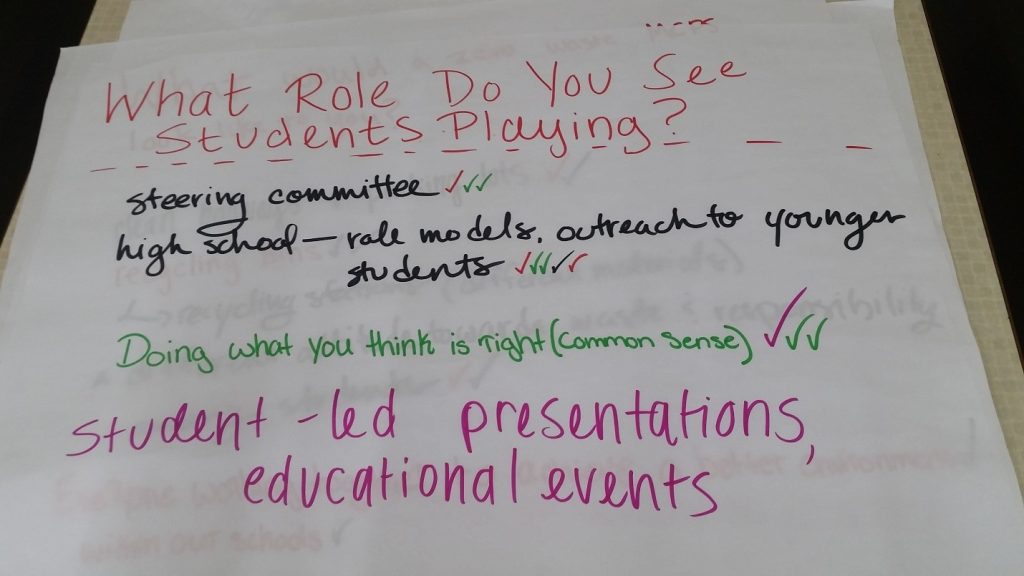 What Role Do You See
Students Playing?
steering committee ✓✓✓
high school — role models, outreach to younger
students ✓✓✓✓✓
Doing what you think is right (common sense) ✓✓✓
student-led presentations,
educational events